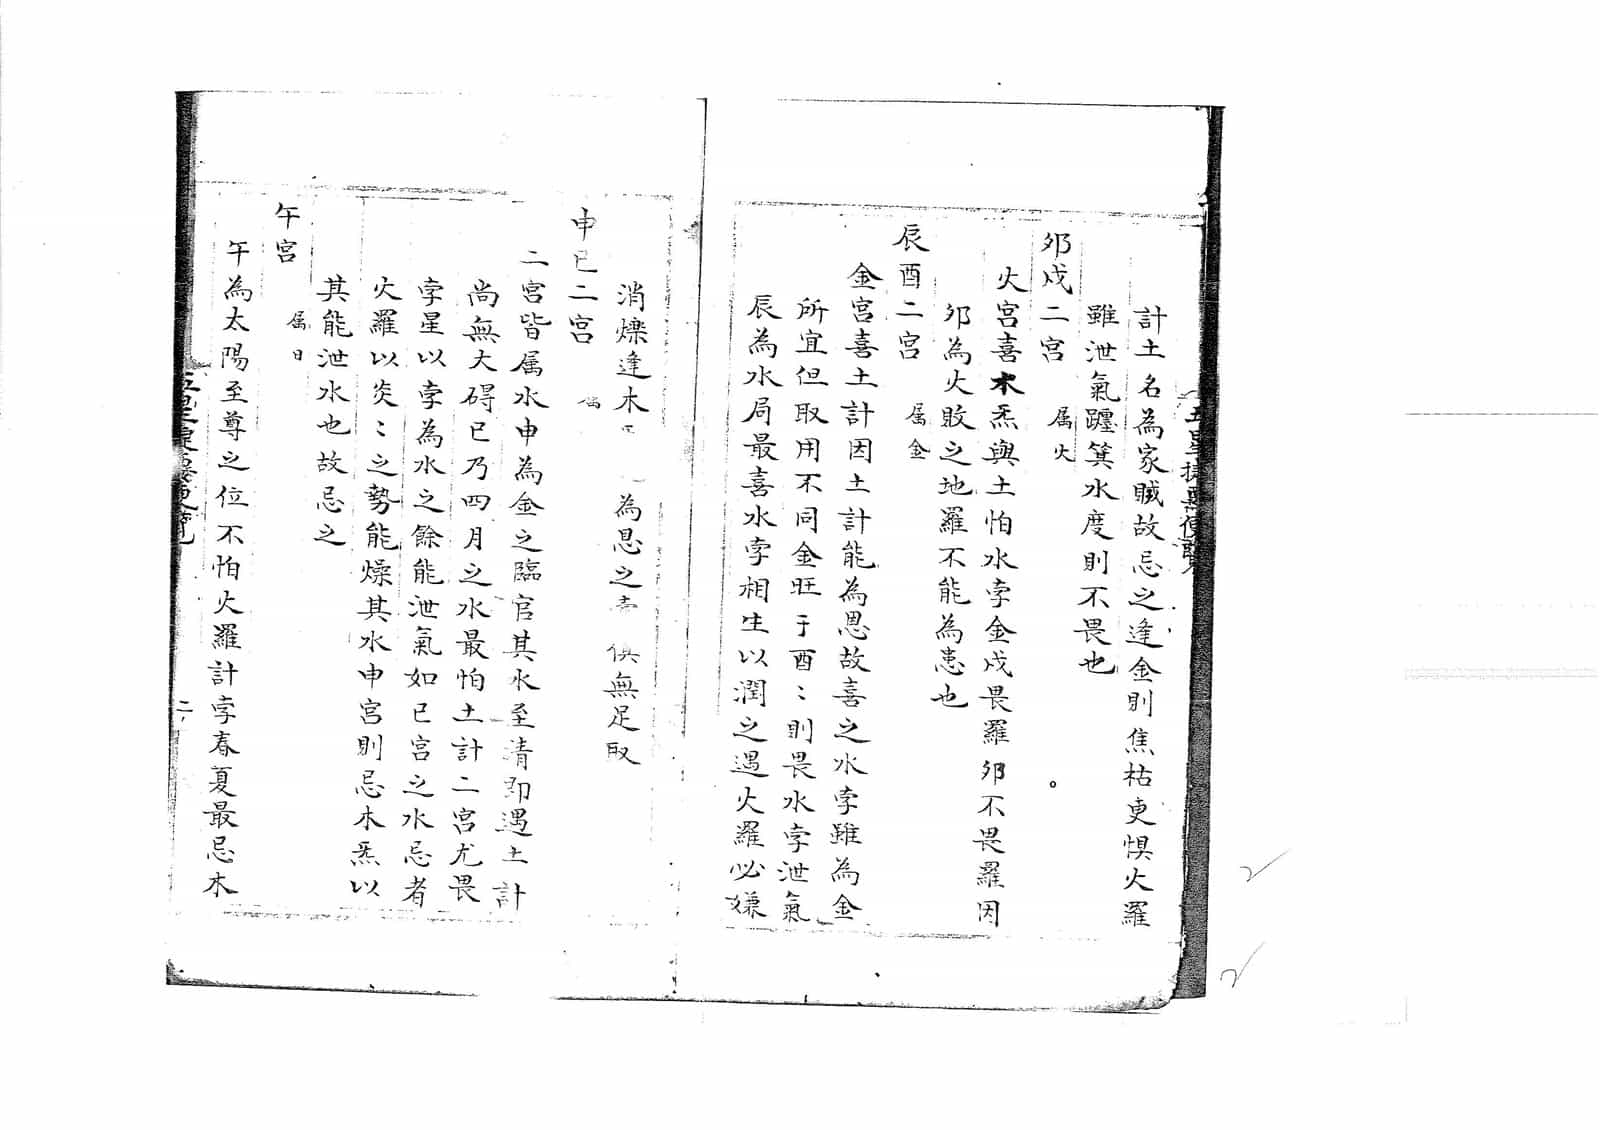 計土名為家賊故忌之逢金則焦枯更惧火羅
雖泄氣躔箕水度則不畏也
夘戌二宮 属火
火宮喜木炁與土怕水孛金戌畏羅夘不畏羅因
夘為火敗之地羅不能為患也
辰酉二宮 属金
金宮喜土計因土計能為恩故喜之水孛雖為金
所宜但取用不同金旺于酉〻則畏水孛泄氣
辰為水局最喜水孛相生以潤之遇火羅必嫌
消爍逢木 為恩之 俱無足取
申巳二宮 属
二宮皆属水申為金之臨官其水至清即遇土計
尚無大碍巳乃四月之水最怕土計二宮尤畏
孛星以孛為水之餘能泄氣如巳宮之水忌者
火羅以炎〻之勢能燥其水申宮則忌木炁以
其能泄水也故忌之
午宮 属日
午為太陽至尊之位不怕火羅計孛春夏最忌木
二